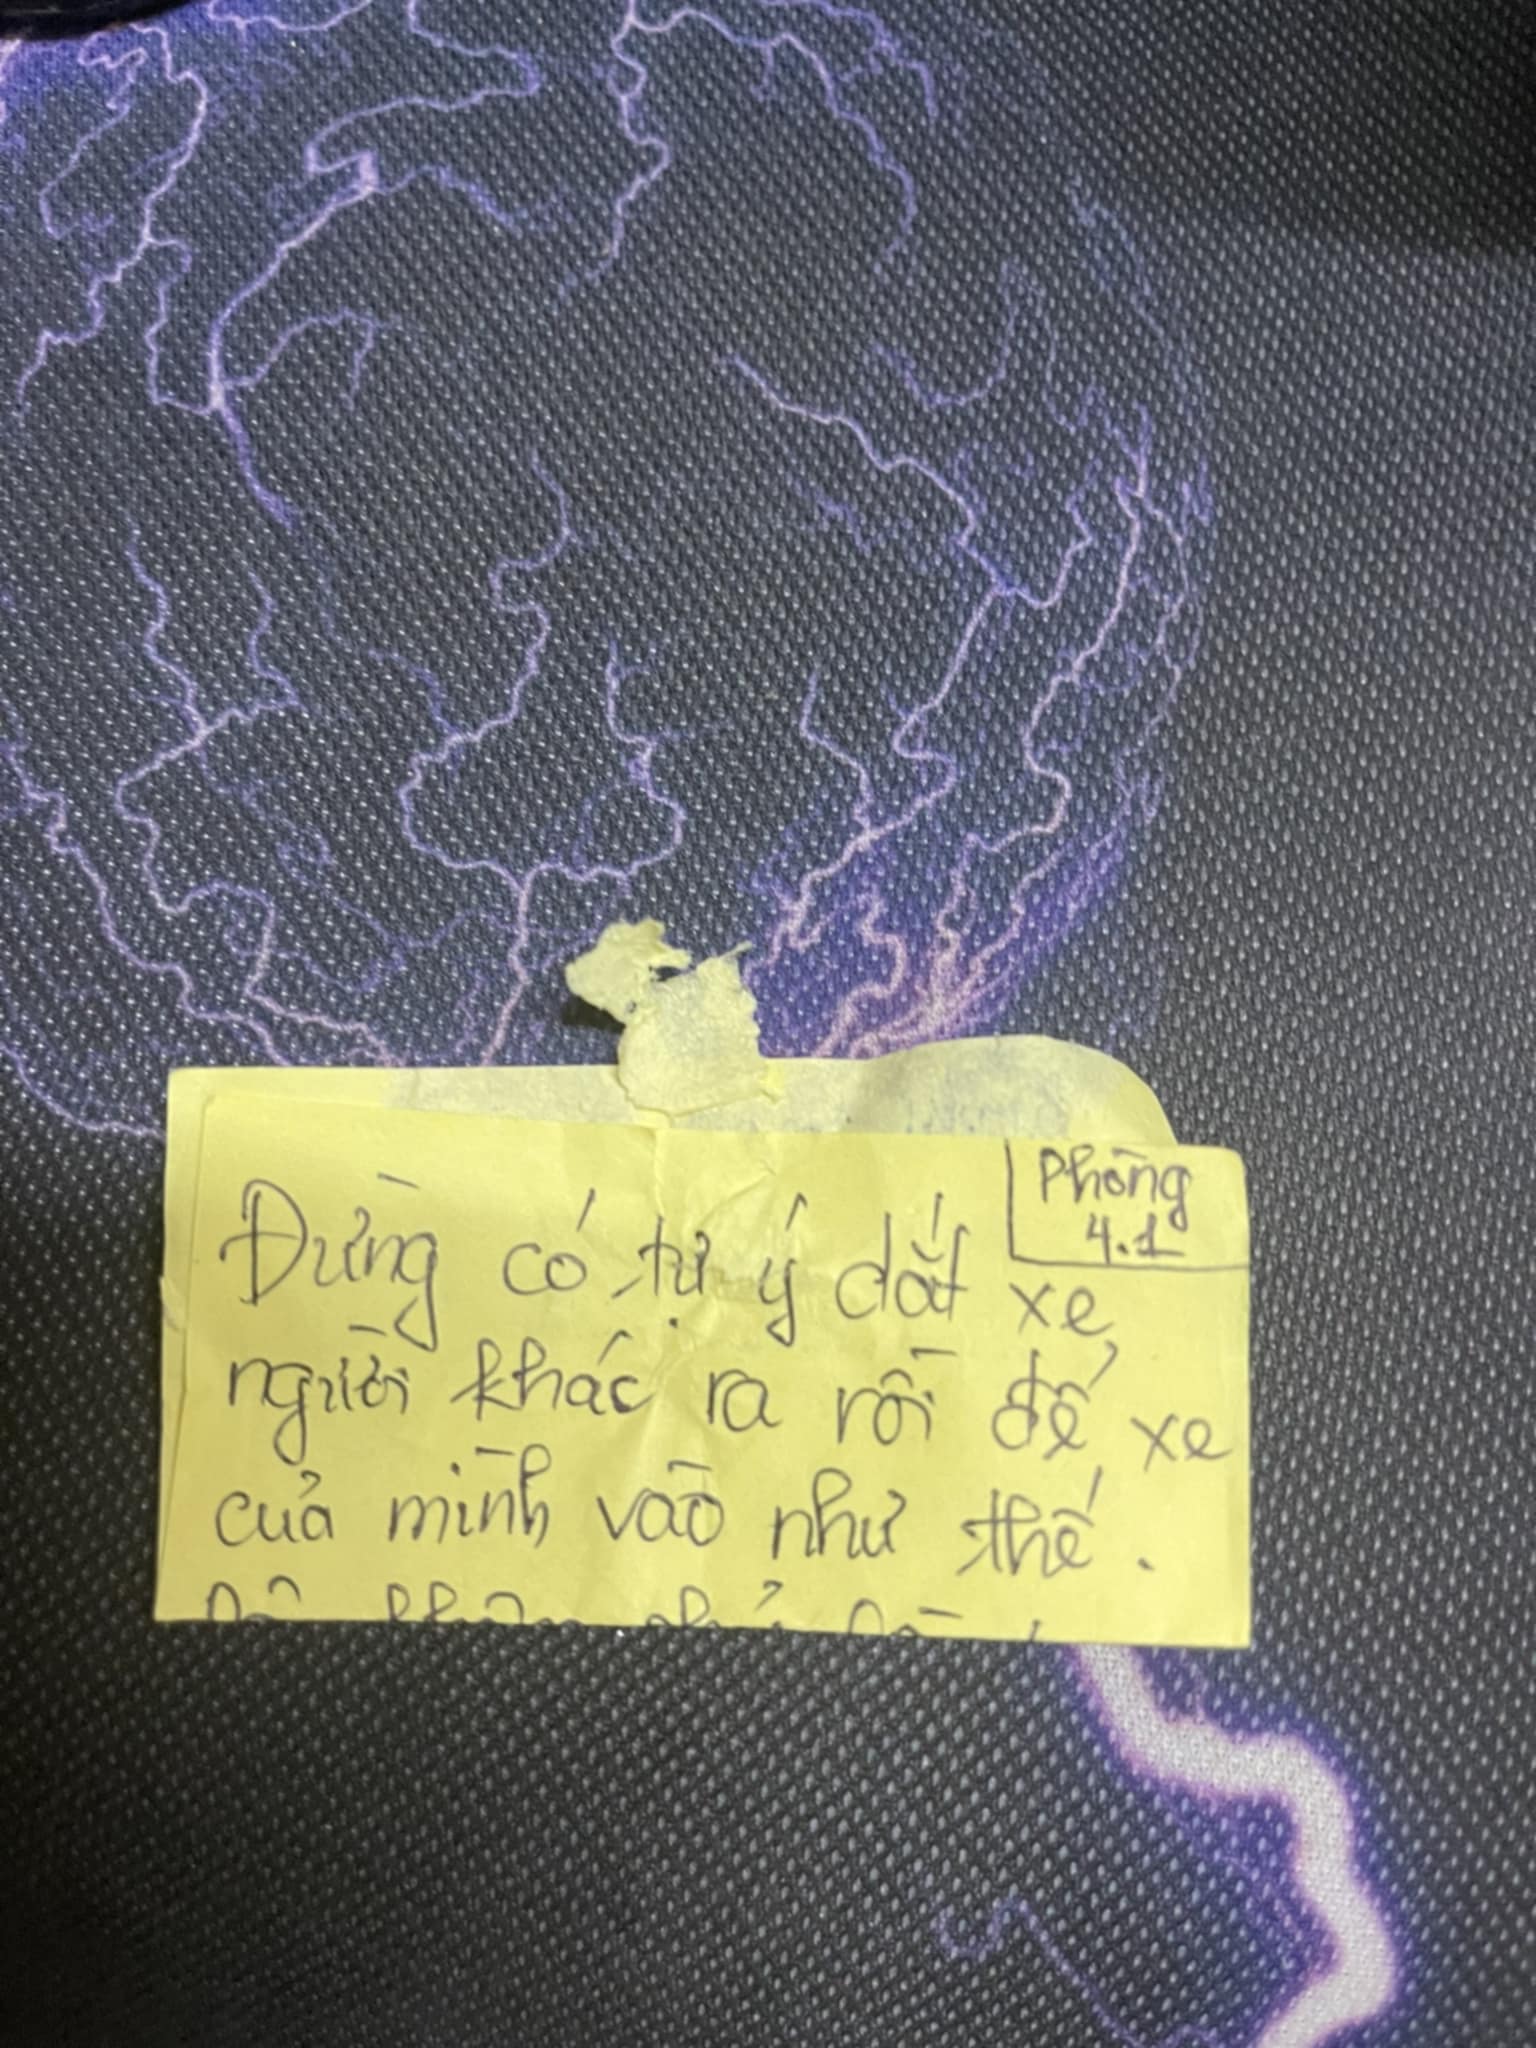 Phòng
4.1
Đừng có tự ý dắt xe
người khác ra rồi để xe
của mình vào như thế.